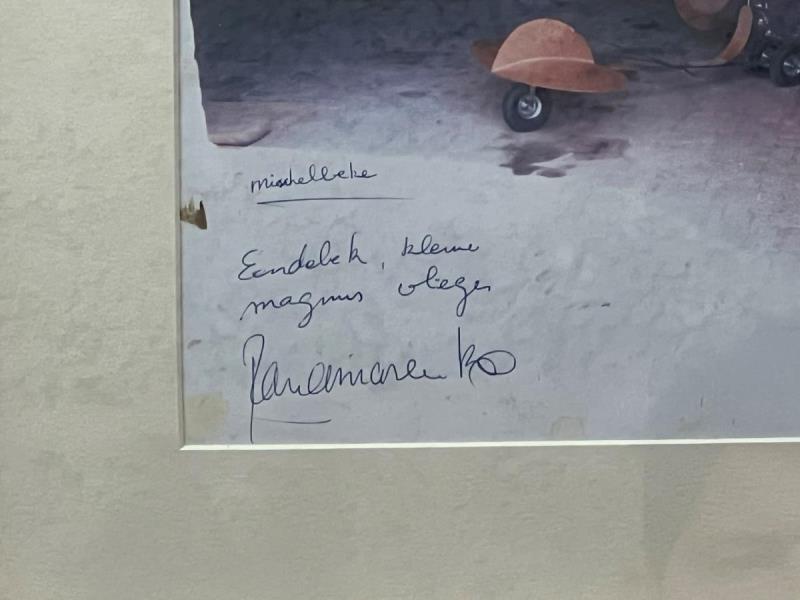 Misschelbeke
Eendebek, kleine
magnus vlieger
Panamarenko